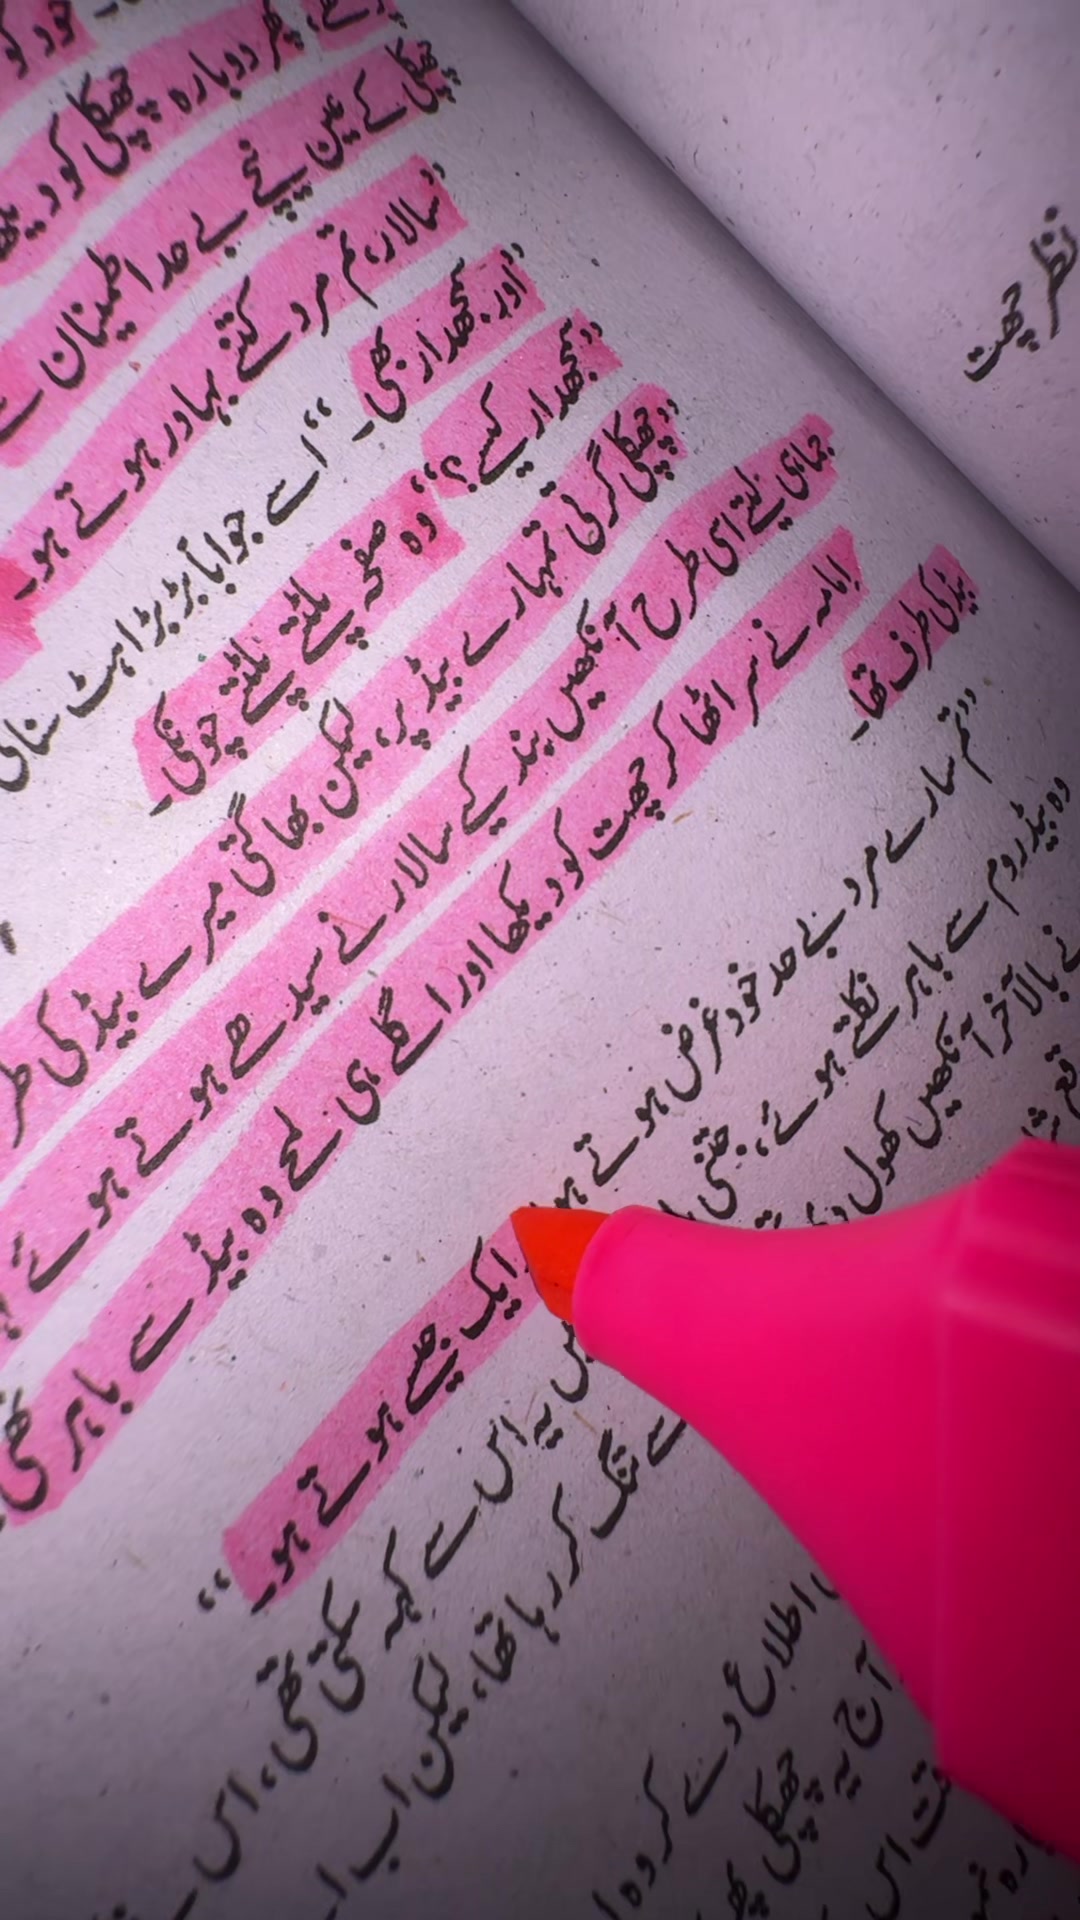 خود کو
پھر دوبارہ چھپکلی کو دیکھا
چھپکلی کے عین نیچے بے حد اطمینان سے
"سالار، تم مرد کتنے بہادر ہوتے ہو۔
"اور سمجھدار بھی۔" اسے جواباً بڑبڑاہٹ سنائی
"سمجھدار کیسے؟" وہ صفحہ پلٹتے پلٹتے چونکی۔
"چھپکلی گرتی تمہارے بیڈ پر، لیکن بھاگتی میرے بیڈ کی طر
جماہی لیتے اسی طرح آنکھیں بند کیے سالار نے سیدھے ہوتے ہوئے
امامہ نے سر اٹھا کر چھت کو دیکھا اور اگلے ہی لمحے وہ بیڈ سے باہر تھی
بیڈ کی طرف تھا۔
"تم سارے مرد بے حد خود غرض ہوتے ہو ایک جیسے ہوتے ہو۔"
وہ بیڈ روم سے باہر نکلتے ہوئے، جتنی یہ اس سے کہہ سکتی تھی، اس
نے بالآخر آنکھیں کھول دی سے تنگ کر رہا تھا، لیکن اب
اطلاع دے کر وہ
آج یہ چھپکلی پھر
اس
نظر چھت